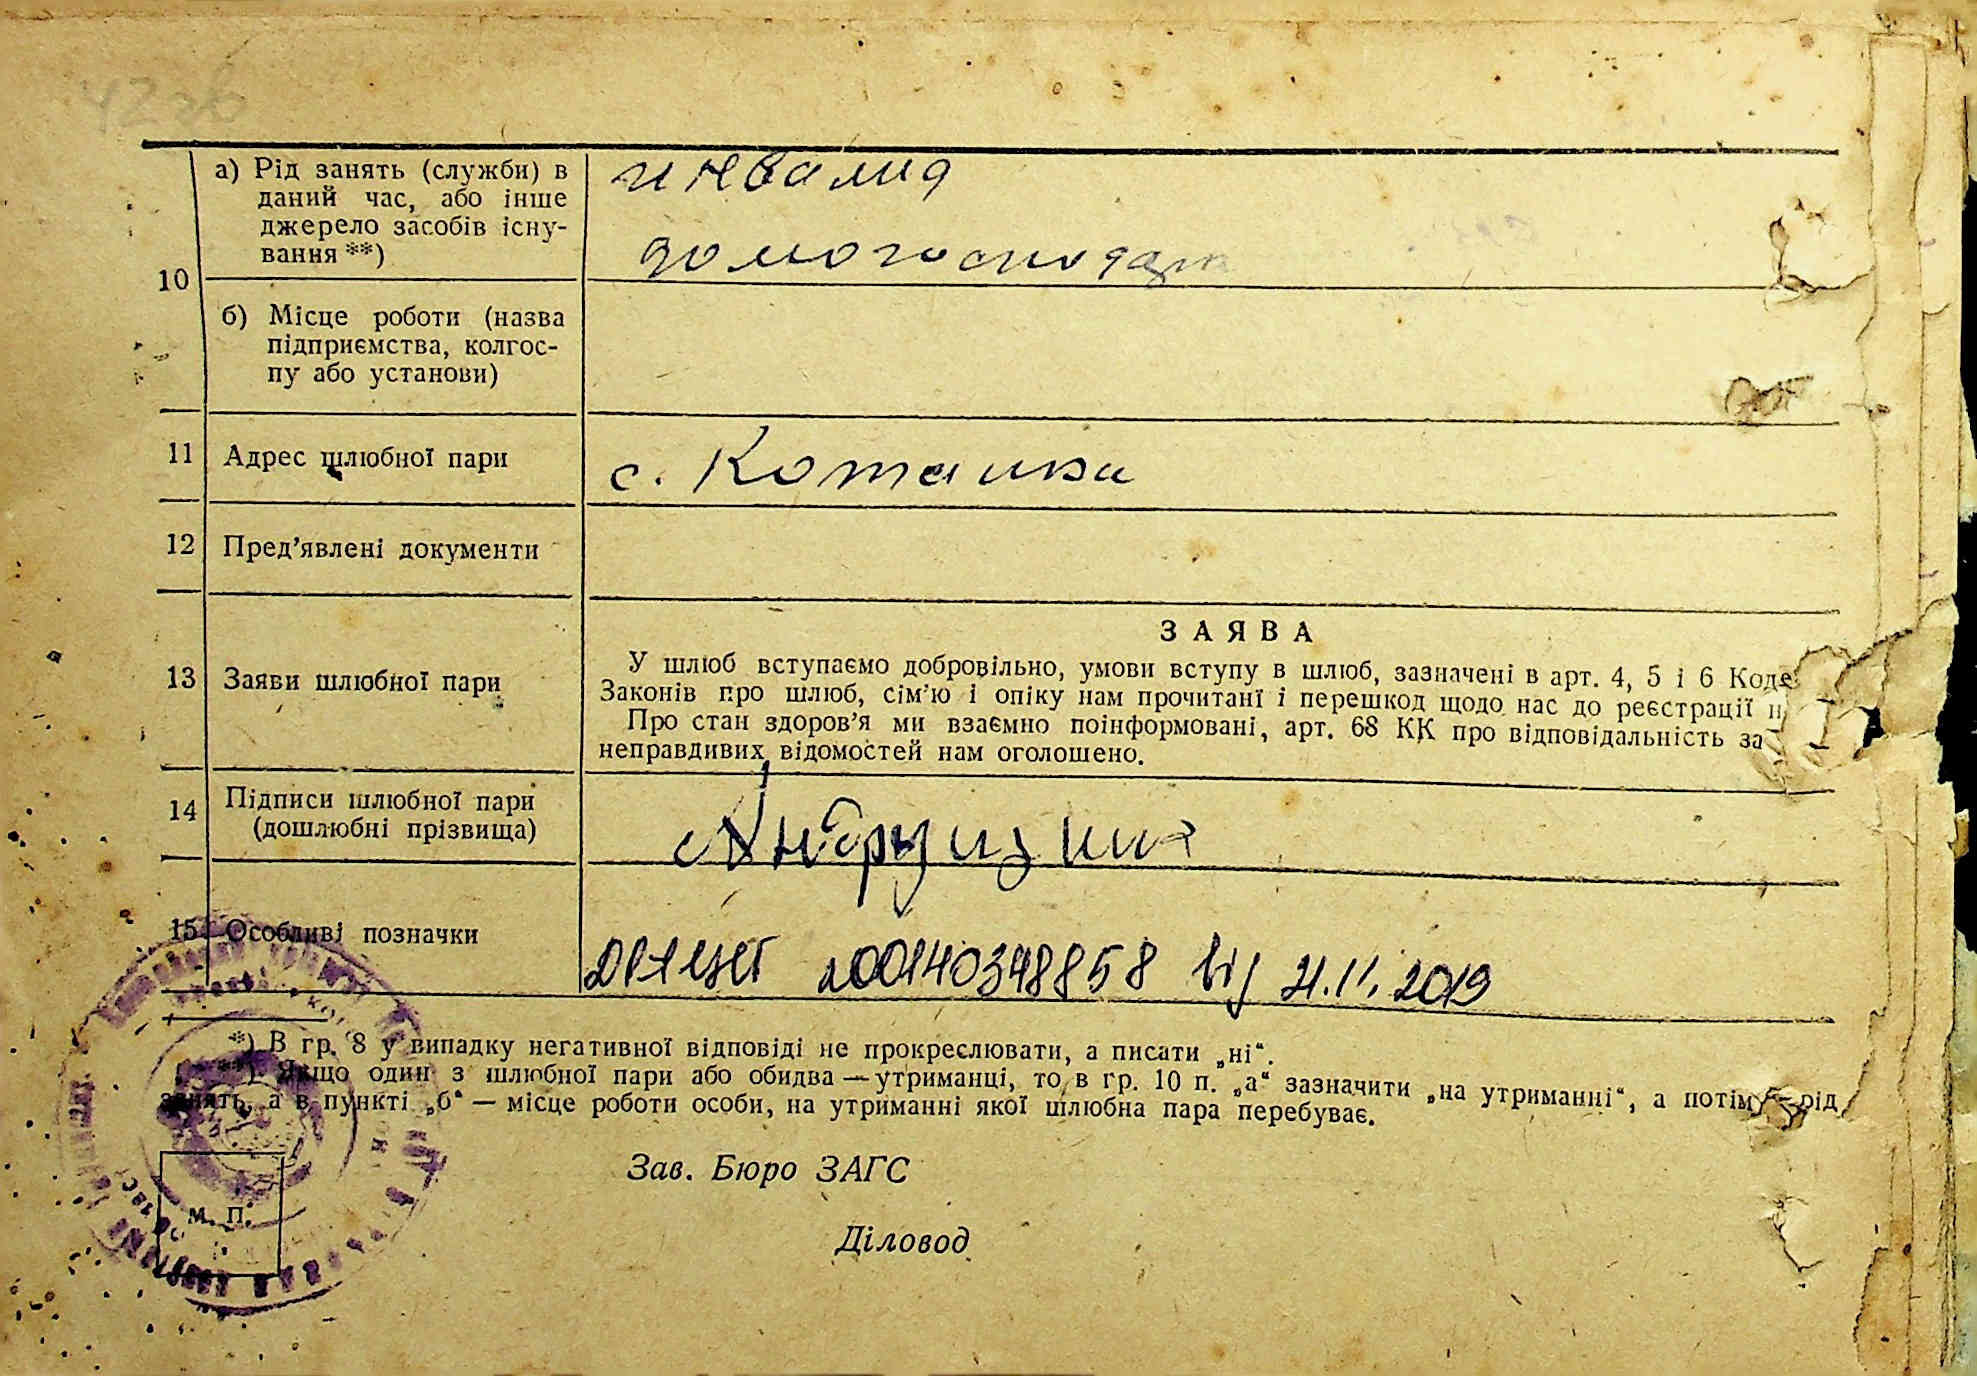 42зв
а) Рід занять (служби) в
даний час, або інше
джерело засобів існу-
вання **)
инвалид
домогосподар
10
б) Місце роботи (назва
підприємства, колгос-
пу або установи)
11 Адрес шлюбної пари
с. Коталика
12 Пред’явлені документи
13 Заяви шлюбної пари
ЗАЯВА
У шлюб вступаємо добровільно, умови вступу в шлюб, зазначені в арт. 4, 5 і 6 Коде
Законів про шлюб, сім’ю і опіку нам прочитані і перешкод щодо нас до реєстрації н
Про стан здоров’я ми взаємно поінформовані, арт. 68 КК про відповідальність за
неправдивих відомостей нам оголошено.
14 Підписи шлюбної пари
(дошлюбні прізвища)
15 Особливі позначки
00140348858 від 21.11.2019
*) В гр. 8 у випадку негативної відповіді не прокреслювати, а писати „ні“.
**) Якщо один з шлюбної пари або обидва — утриманці, то в гр. 10 п. „а“ зазначити „на утриманні“, а потім рід
занять, а в пункті „б“ — місце роботи особи, на утриманні якої шлюбна пара перебуває.
Зав. Бюро ЗАГС
Діловод
м. п.